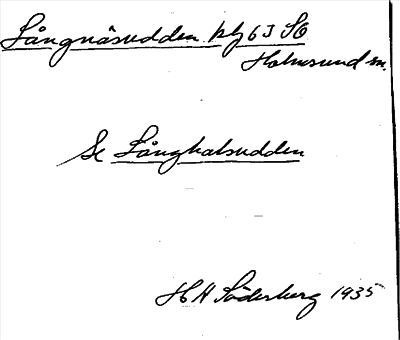 Långnäsudden kbl 63 SO
Holmsund sn.
Se Långhalsudden
H H Söderberg 1935